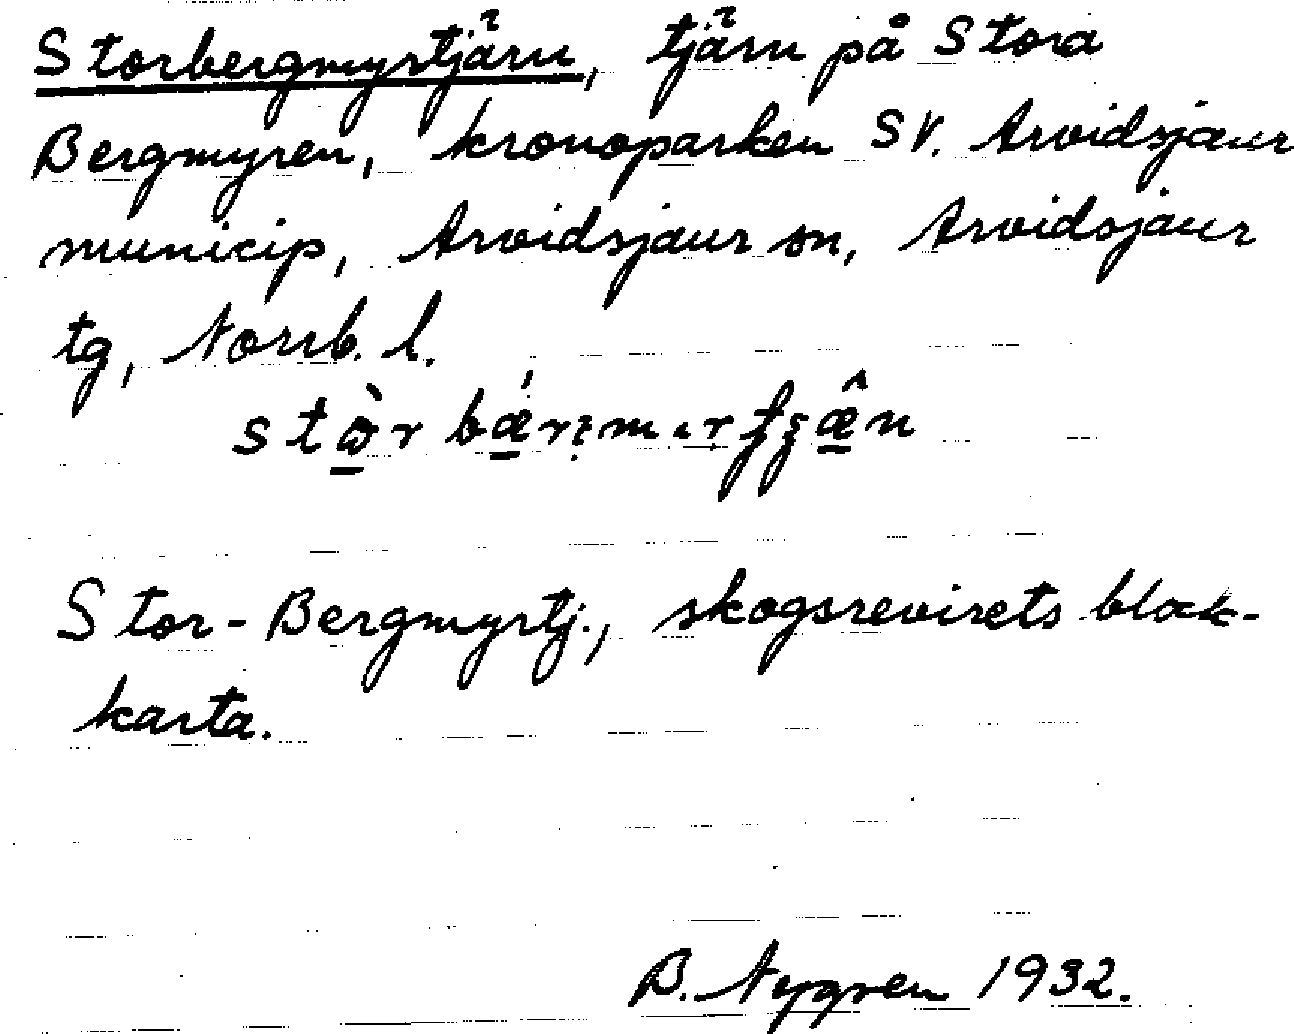 Storbergmyrtjärn, tjärn på Stora
Bergmyren, kronoparken SV. Arvidsjaur
municip, Arvidsjaur sn, Arvidsjaur
tg, Norrb. l.
Stor-Bergmyrtj., skogsrevirets blak-
karta.
B. Nygren 1932.